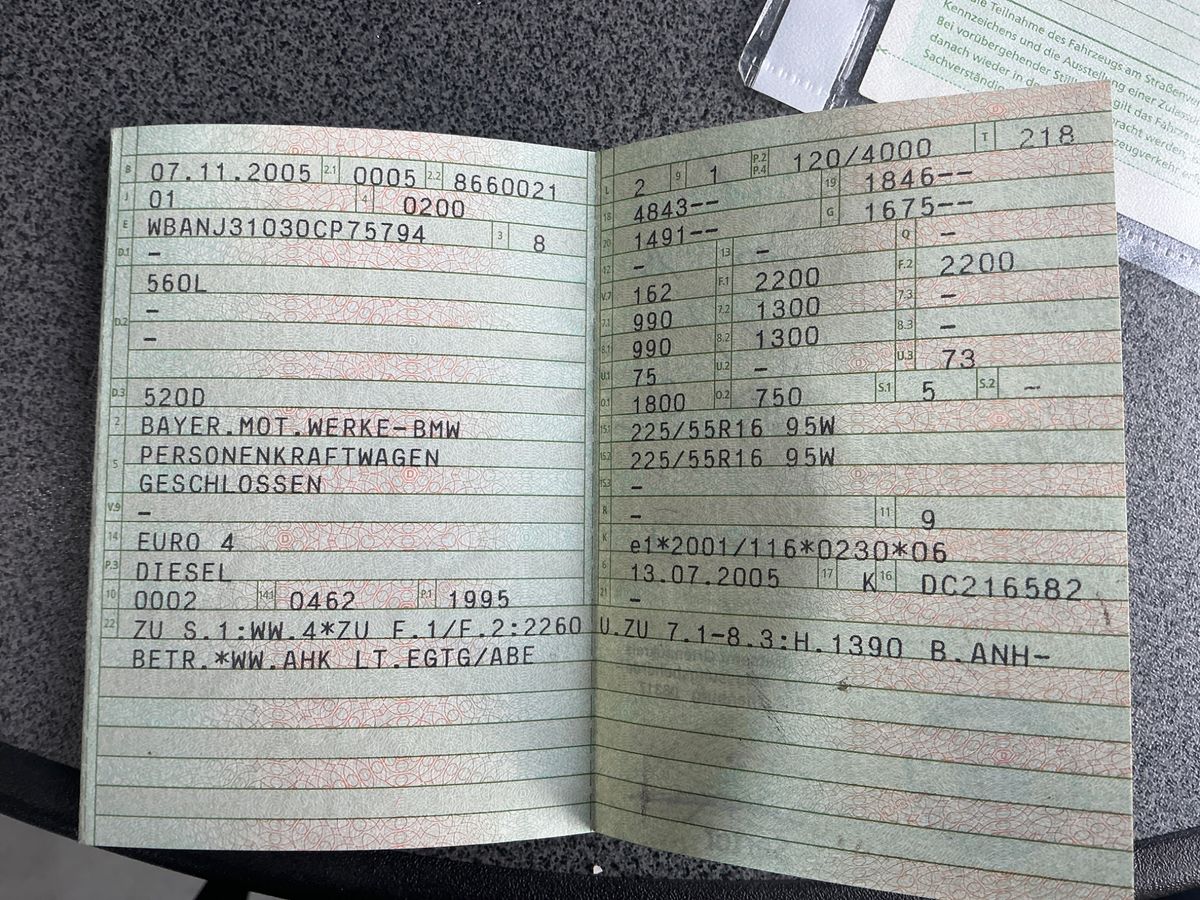 ale Teilnahme des Fahrzeugs am Straßenve
Kennzeichens und die Ausstellung einer Zulas
Bei vorübergehender Still
danach wieder in d gilt das Fahrze
Sachverständig racht werden,
zeugverkehr
B 07.11.2005 2.1 0005 2.2 8660021
J 01 4 0200
E WBANJ31030CP75794 3 8
D.1 –
560L
–
D.2 –
D.3 520D
2 BAYER.MOT.WERKE–BMW
5 PERSONENKRAFTWAGEN
GESCHLOSSEN
V.9 –
14 EURO 4
P.3 DIESEL
10 0002 14.1 0462 P.1 1995
22 ZU S.1:WW.4*ZU F.1/F.2:2260 U.ZU 7.1–8.3:H.1390 B.ANH–
BETR.*WW.AHK LT.EGTG/ABE
L 2 9 1 P.2 P.4 120/4000 T 218
18 4843–– 19 1846––
20 1491–– G 1675––
12 – 13 – Q –
V.7 162 F.1 2200 F.2 2200
7.1 990 7.2 1300 7.3 –
8.1 990 8.2 1300 8.3 –
U.1 75 U.2 – U.3 73
O.1 1800 O.2 750 S.1 5 S.2 –
15.1 225/55R16 95W
15.2 225/55R16 95W
15.3 –
R – 11 9
K e1*2001/116*0230*06
6 13.07.2005 17 K 16 DC216582
21 –